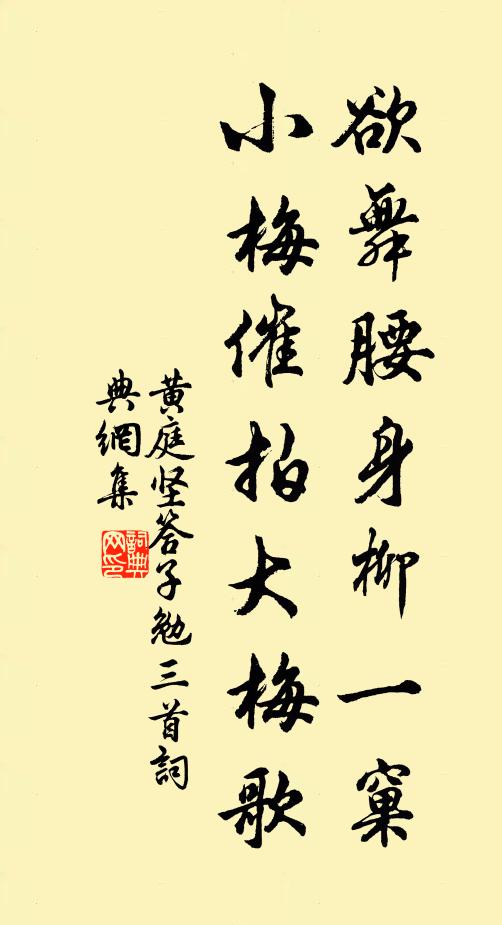 欲舞腰身柳一窠
小梅催拍大梅歌
黄庭坚答子勉三首詞
典網集
詞典网印